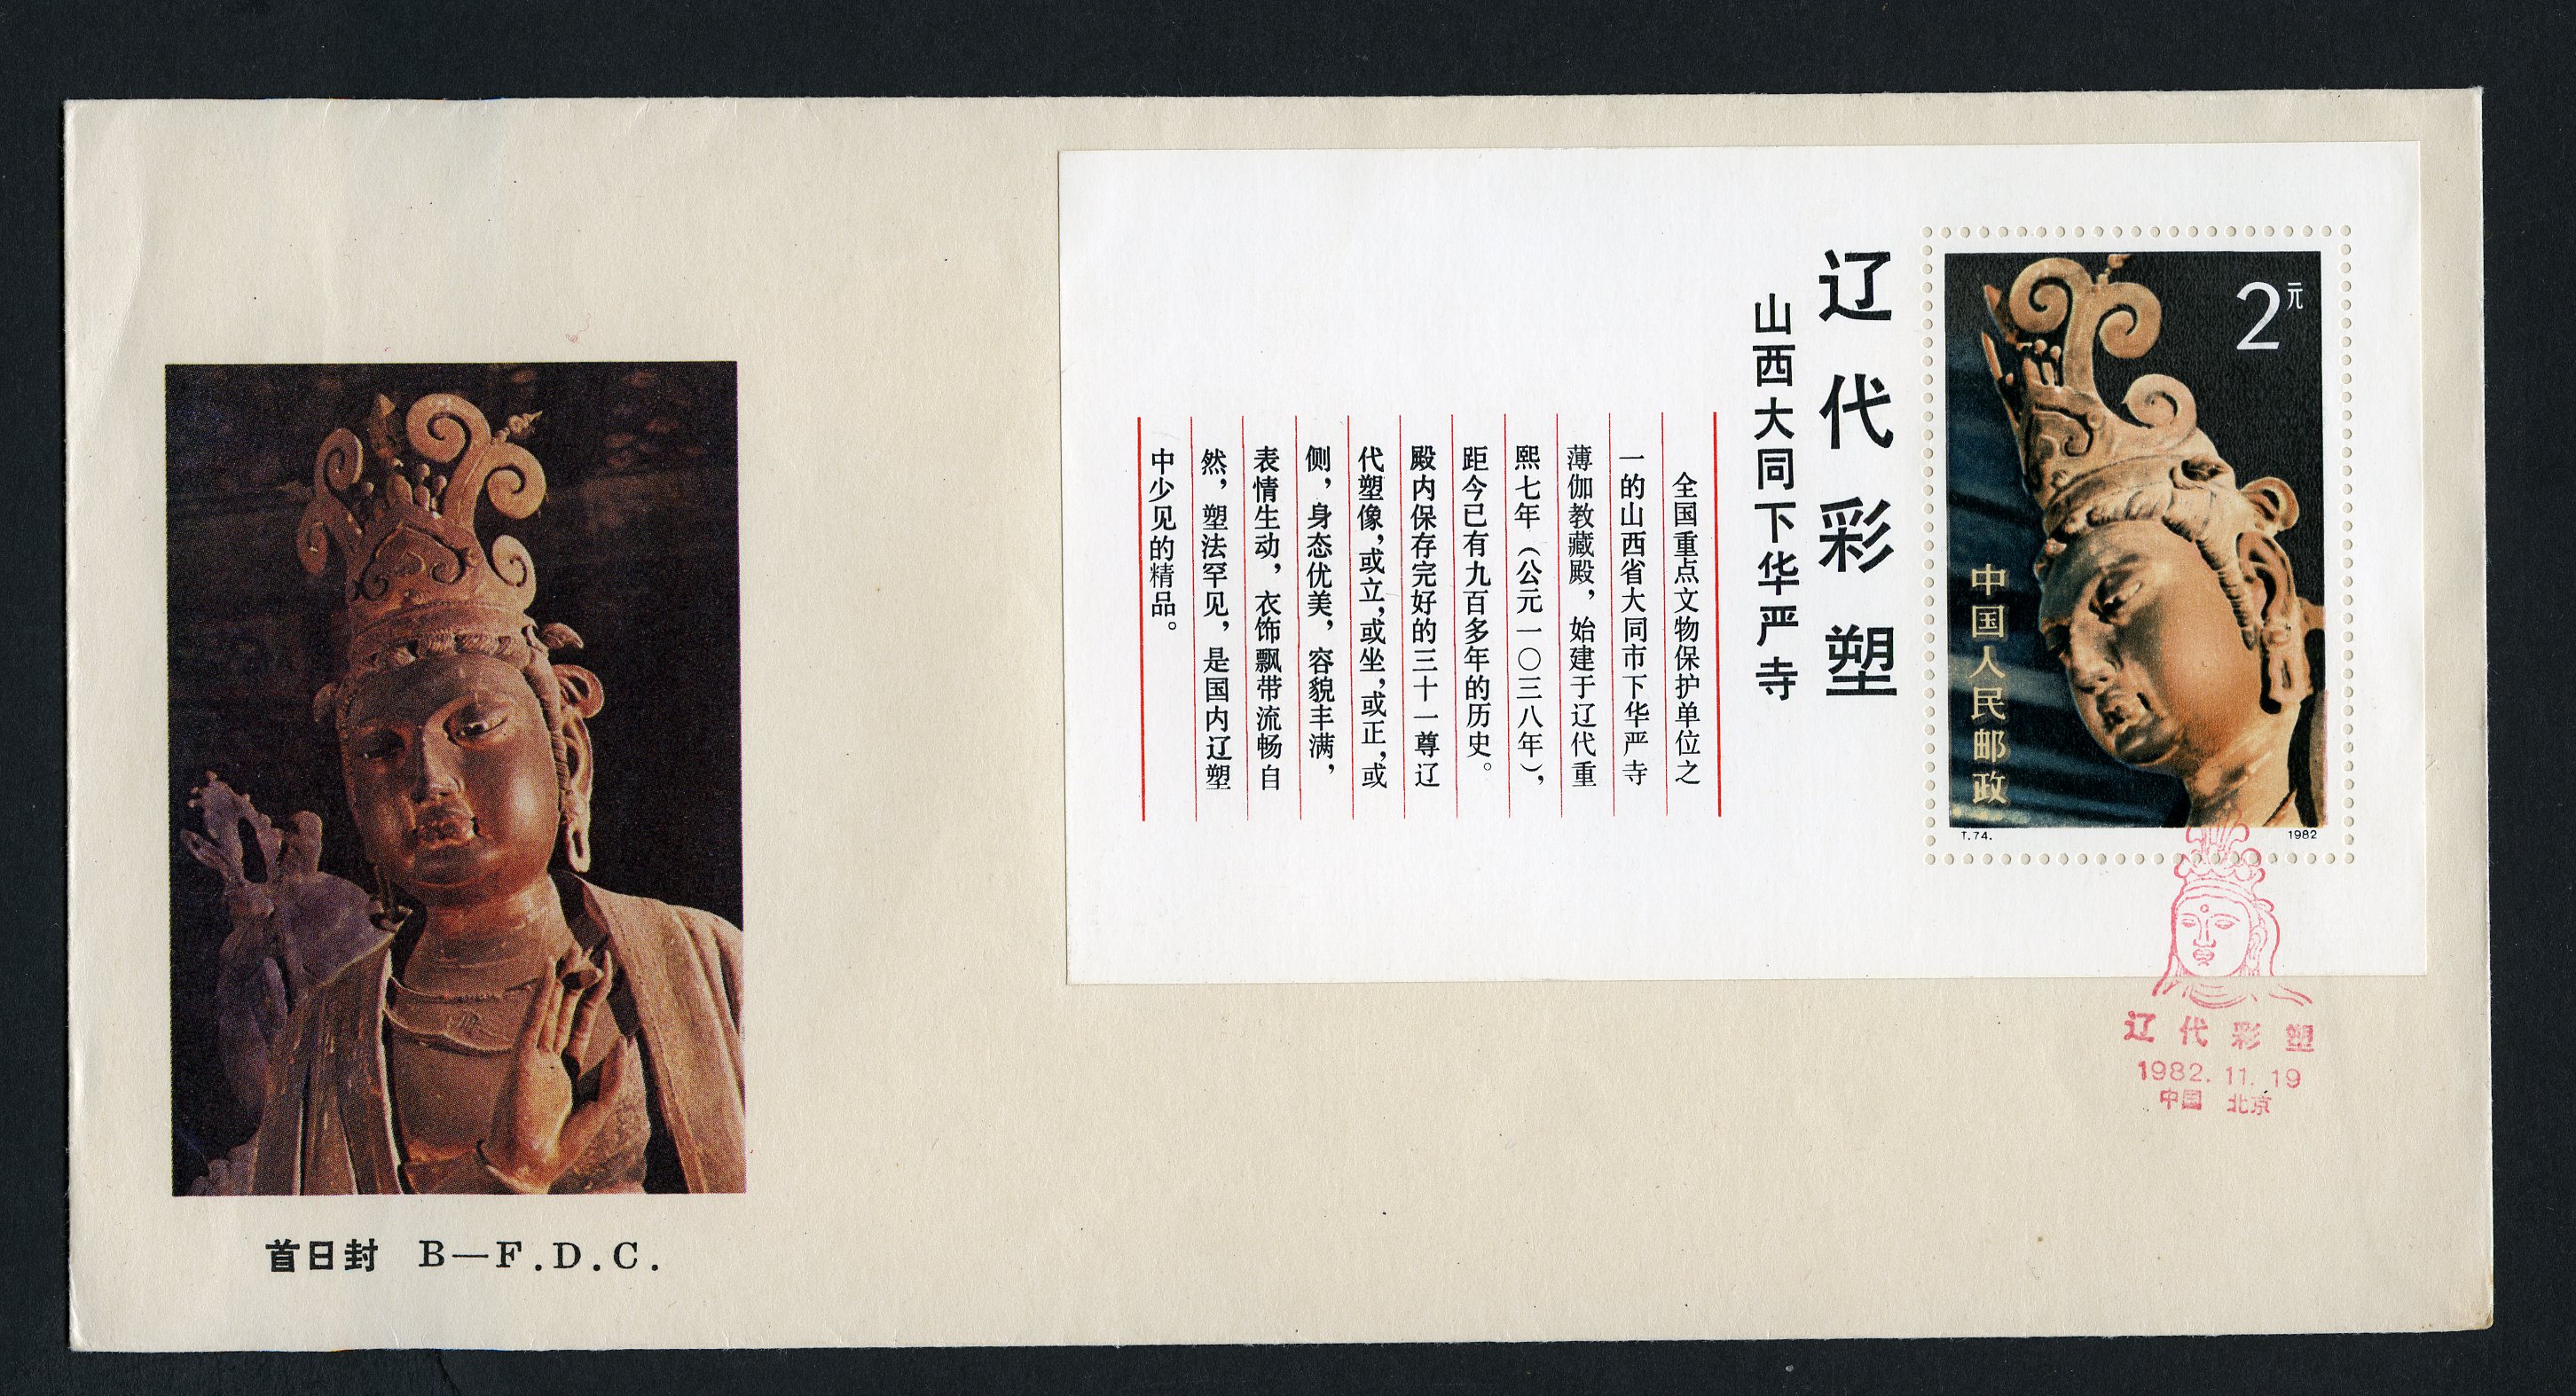 2元
中国人民邮政
T.74.
1982
辽代彩塑
山西大同下华严寺
全国重点文物保护单位之
一的山西省大同市下华严寺
薄伽教藏殿，始建于辽代重
熙七年（公元一〇三八年），
距今已有九百多年的历史。
殿内保存完好的三十一尊辽
代塑像，或立，或坐，或正，或
侧，身态优美，容貌丰满，
表情生动，衣饰飘带流畅自
然，塑法罕见，是国内辽塑
中少见的精品。
辽代彩塑
1982.11.19
中国 北京
首日封 B—F.D.C.